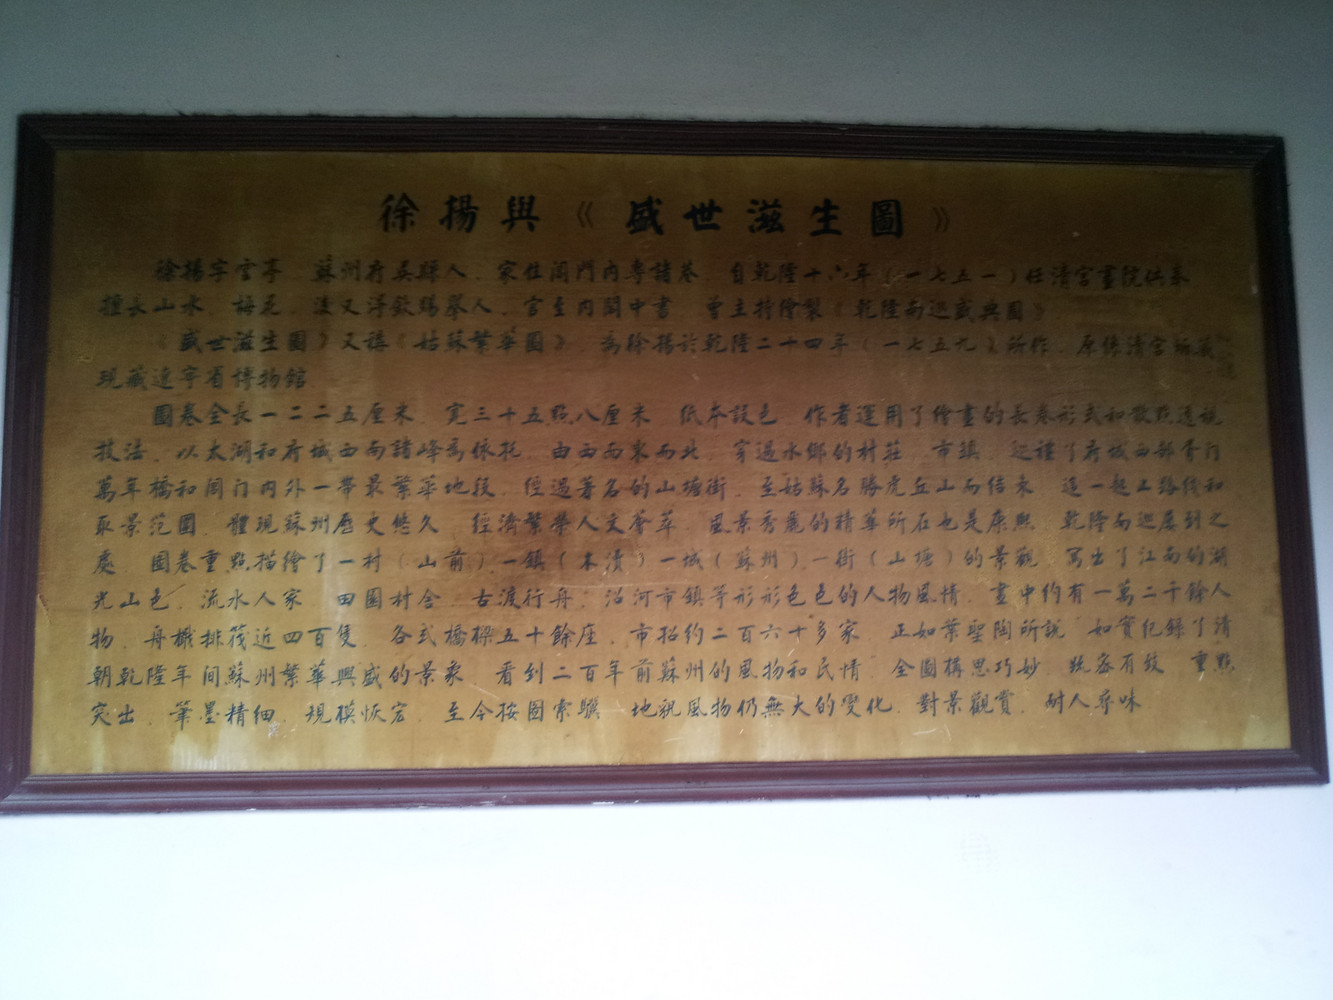 徐揚與《盛世滋生圖》
徐揚字雲亭 蘇州府吳縣人．家住閶門內專諸巷．自乾隆十六年（一七五一）任清宮畫院供奉
擅長山水．梅花．後又得欽賜舉人．官至內閣中書．曾主持繪製《乾隆南巡盛典圖》．
《盛世滋生圖》又稱《姑蘇繁華圖》．為徐揚於乾隆二十四年（一七五九）所作．原係清宮所藏
現藏遼寧省博物館
圖卷全長一二二五厘米 寬三十五點八厘米 紙本設色 作者運用了繪畫的長卷形式和散點透視
技法．以太湖和府城西南諸峰為依托．由西而東而北．穿過水鄉的村莊．市鎮．巡禮了府城西部胥门
萬年橋和閶门內外一帶最繁華地段．經過著名的山塘街．至姑蘇名勝虎丘山而結束 這一起止路线和
取景范圍．體現蘇州歷史悠久 經濟繁榮人文薈萃．風景秀麗的精華所在也是康熙 乾隆南巡屢到之
處 圖卷重點描繪了一村（山前）一鎮（木瀆）一城（蘇州）．一街（山塘）的景觀．寫出了江南的湖
光山色．流水人家．田園村舍．古渡行舟．沿河市鎮等形形色色的人物風情．畫中約有一萬二千餘人
物．舟檝排筏近四百隻．各式橋樑五十餘座．市招約二百六十多家 正如葉聖陶所說 如實纪錄了清
朝乾隆年间蘇州繁華興盛的景象 看到二百年前蘇州的風物和民情．全圖構思巧妙．疏密有致 重點
突出．筆墨精细．規模恢宏．至今按圖索驥 地貌風物仍無大的變化．對景觀賞．耐人尋味